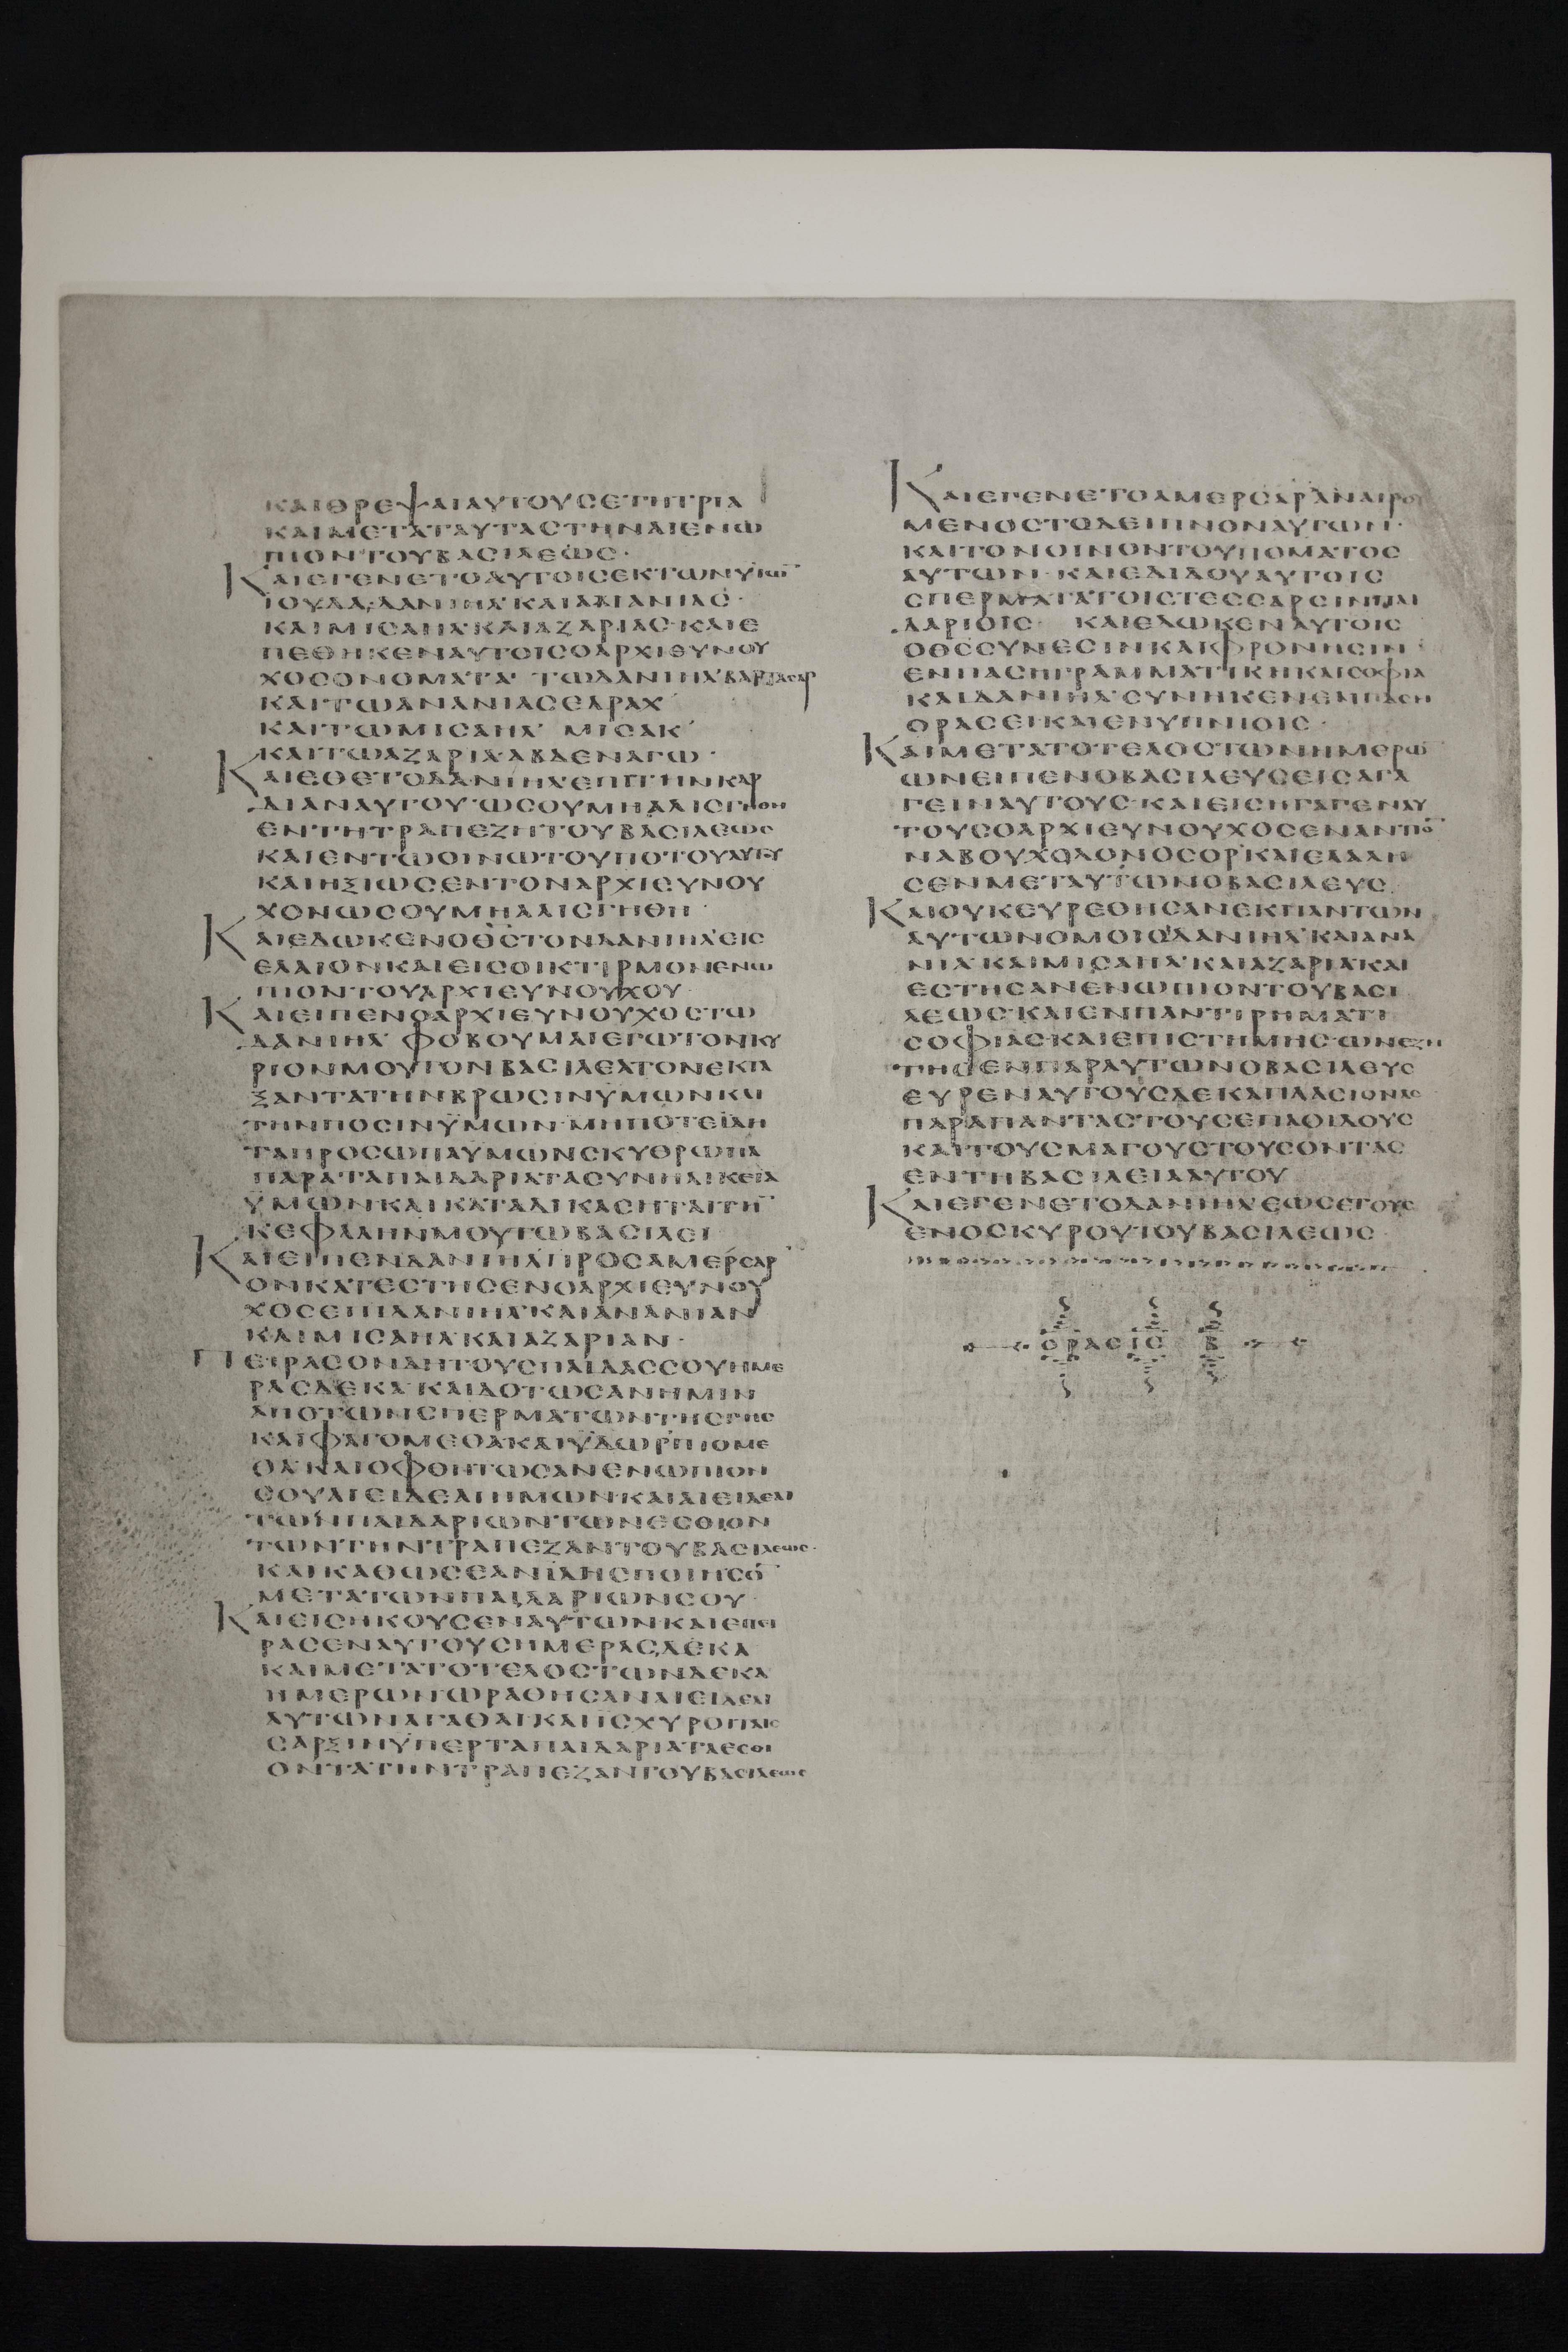 ΚΑΙΘΡΕΨΑΙΑΥΤΟΥΣΕΤΗΤΡΙΑ
ΚΑΙΜΕΤΑΤΑΥΤΑΣΤΗΝΑΙΕΝΩ
ΠΙΟΝΤΟΥΒΑΣΙΛΕΩΣ·
ΚΑΙΕΓΕΝΕΤΟΑΥΤΟΙΣΕΚΤΩΝΥΙΩ̅
ΙΟΥΔΑ·ΔΑΝΙΗΛ'ΚΑΙΑΝΑΝΙΑΣ·
ΚΑΙΜΙΣΑΗΛ'ΚΑΙΑΖΑΡΙΑΣ·ΚΑΙΕ
ΠΕΘΗΚΕΝΑΥΤΟΙΣΟΑΡΧΙΕΥΝΟΥ
ΧΟΣΟΝΟΜΑΤΑ· ΤΩΔΑΝΙΗΛ'ΒΑΡΤΑΣΑΡ
ΚΑΙΤΩΑΝΑΝΙΑΣΕΔΡΑΧ'
ΚΑΙΤΩΜΙΣΑΗΛ' ΜΙΣΑΚ'
ΚΑΙΤΩΑΖΑΡΙΑ·ΑΒΔΕΝΑΓΩ·
ΚΑΙΕΘΕΤΟΔΑΝΙΗΛ'ΕΠΙΤΗΝΚΑΡ
ΔΙΑΝΑΥΤΟΥ·ΩΣΟΥΜΗΑΛΙΣΓΗΘΗ
ΕΝΤΗΤΡΑΠΕΖΗΤΟΥΒΑΣΙΛΕΩΣ
ΚΑΙΕΝΤΩΟΙΝΩΤΟΥΠΟΤΟΥΑΥΤΟΥ
ΚΑΙΗΞΙΩΣΕΝΤΟΝΑΡΧΙΕΥΝΟΥ
ΧΟΝΩΣΟΥΜΗΑΛΙΣΓΗΘΗ·
ΚΑΙΕΔΩΚΕΝΟΘ̅Σ̅ΤΟΝΔΑΝΙΗΛ'ΕΙΣ
ΕΛΑΙΟΝΚΑΙΕΙΣΟΙΚΤΙΡΜΟΝΕΝΩ
ΠΙΟΝΤΟΥΑΡΧΙΕΥΝΟΥΧΟΥ·
ΚΑΙΕΙΠΕΝΟΑΡΧΙΕΥΝΟΥΧΟΣΤΩ
ΔΑΝΙΗΛ' ΦΟΒΟΥΜΑΙΕΓΩΤΟΝΚΥ
ΡΙΟΝΜΟΥΤΟΝΒΑΣΙΛΕΑΤΟΝΕΚΤΑ
ΞΑΝΤΑΤΗΝΒΡΩΣΙΝΥΜΩΝΚΑΙ
ΤΗΝΠΟΣΙΝΥΜΩΝ·ΜΗΠΟΤΕΙΔΗ
ΤΑΠΡΟΣΩΠΑΥΜΩΝΣΚΥΘΡΩΠΑ
ΠΑΡΑΤΑΠΑΙΔΑΡΙΑΤΑΣΥΝΗΛΙΚΕΙΑ
ΥΜΩΝΚΑΙΚΑΤΑΔΙΚΑΣΗΤΑΙΤΗ̅
ΚΕΦΑΛΗΝΜΟΥΤΩΒΑΣΙΛΕΙ
ΚΑΙΕΙΠΕΝΔΑΝΙΗΛ'ΠΡΟΣΑΜΕΡΣΑΡ'
ΟΝΚΑΤΕΣΤΗΣΕΝΟΑΡΧΙΕΥΝΟΥ
ΧΟΣΕΠΙΔΑΝΙΗΛ'ΚΑΙΑΝΑΝΙΑΝ
ΚΑΙΜΙΣΑΗΛ'ΚΑΙΑΖΑΡΙΑΝ·
ΠΕΙΡΑΣΟΝΔΗΤΟΥΣΠΑΙΔΑΣΣΟΥΗΜΕ
ΡΑΣΔΕΚΑ·ΚΑΙΔΟΤΩΣΑΝΗΜΙΝ
ΑΠΟΤΩΝΣΠΕΡΜΑΤΩΝΤΗΣΓΗΣ
ΚΑΙΦΑΓΟΜΕΘΑ·ΚΑΙΥΔΩΡΠΙΟΜΕ
ΘΑ·ΚΑΙΟΦΘΗΤΩΣΑΝΕΝΩΠΙΟΝ
ΣΟΥΑΙΕΙΔΕΑΙΗΜΩΝ·ΚΑΙΑΙΕΙΔΕΑΙ
ΤΩΝΠΑΙΔΑΡΙΩΝΤΩΝΕΣΘΙΟΝ
ΤΩΝΤΗΝΤΡΑΠΕΖΑΝΤΟΥΒΑΣΙΛΕΩΣ·
ΚΑΙΚΑΘΩΣΕΑΝΙΔΗΣΠΟΙΗΣΟ̅
ΜΕΤΑΤΩΝΠΑΙΔΑΡΙΩΝΣΟΥ·
ΚΑΙΕΙΣΗΚΟΥΣΕΝΑΥΤΩΝ·ΚΑΙΕΠΕΙ
ΡΑΣΕΝΑΥΤΟΥΣΗΜΕΡΑΣΔΕΚΑ
ΚΑΙΜΕΤΑΤΟΤΕΛΟΣΤΩΝΔΕΚΑ
ΗΜΕΡΩΝΩΡΑΘΗΣΑΝΑΙΕΙΔΕΑΙ
ΑΥΤΩΝΑΓΑΘΑΙ·ΚΑΙΙΣΧΥΡΟΙΤΑΙΣ
ΣΑΡΞΙΝΥΠΕΡΤΑΠΑΙΔΑΡΙΑΤΑΕΣΘΙ
ΟΝΤΑΤΗΝΤΡΑΠΕΖΑΝΤΟΥΒΑΣΙΛΕΩΣ
ΚΑΙΕΓΕΝΕΤΟΑΜΕΡΣΑΡ'ΑΝΑΙΡΟΥ
ΜΕΝΟΣΤΟΔΕΙΠΝΟΝΑΥΤΩΝ·
ΚΑΙΤΟΝΟΙΝΟΝΤΟΥΠΟΜΑΤΟΣ
ΑΥΤΩΝ·ΚΑΙΕΔΙΔΟΥΑΥΤΟΙΣ
ΣΠΕΡΜΑΤΑΤΟΙΣΤΕΣΣΑΡΣΙΝΠΑΙ
ΔΑΡΙΟΙΣ· ΚΑΙΕΔΩΚΕΝΑΥΤΟΙΣ
ΟΘ̅Σ̅ΣΥΝΕΣΙΝΚΑΙΦΡΟΝΗΣΙΝ·
ΕΝΠΑΣΗΓΡΑΜΜΑΤΙΚΗΚΑΙΣΟΦΙΑ
ΚΑΙΔΑΝΙΗΛ'ΣΥΝΗΚΕΝΕΝΠΑΣΗ
ΟΡΑΣΕΙΚΑΙΕΝΥΠΝΙΟΙΣ·
ΚΑΙΜΕΤΑΤΟΤΕΛΟΣΤΩΝΗΜΕΡΩ̅
ΩΝΕΙΠΕΝΟΒΑΣΙΛΕΥΣΕΙΣΑΓΑ
ΓΕΙΝΑΥΤΟΥΣ·ΚΑΙΕΙΣΗΓΑΓΕΝΑΥ
ΤΟΥΣΟΑΡΧΙΕΥΝΟΥΧΟΣΕΝΑΝΤΙΟ̅
ΝΑΒΟΥΧΟΔΟΝΟΣΟΡ'ΚΑΙΕΛΑΛΗ
ΣΕΝΜΕΤΑΥΤΩΝΟΒΑΣΙΛΕΥΣ·
ΚΑΙΟΥΚΕΥΡΕΘΗΣΑΝΕΚΠΑΝΤΩΝ
ΑΥΤΩΝΟΜΟΙΟΙΔΑΝΙΗΛ'ΚΑΙΑΝΑ
ΝΙΑ·ΚΑΙΜΙΣΑΗΛ'ΚΑΙΑΖΑΡΙΑ·ΚΑΙ
ΕΣΤΗΣΑΝΕΝΩΠΙΟΝΤΟΥΒΑΣΙ
ΛΕΩΣ·ΚΑΙΕΝΠΑΝΤΙΡΗΜΑΤΙ
ΣΟΦΙΑΣΚΑΙΕΠΙΣΤΗΜΗΣ·ΩΝΕΖΗ
ΤΗΣΕΝΠΑΡΑΥΤΩΝΟΒΑΣΙΛΕΥΣ
ΕΥΡΕΝΑΥΤΟΥΣΔΕΚΑΠΛΑΣΙΟΝΑΣ
ΠΑΡΑΠΑΝΤΑΣΤΟΥΣΕΠΑΟΙΔΟΥΣ
ΚΑΙΤΟΥΣΜΑΓΟΥΣΤΟΥΣΟΝΤΑΣ
ΕΝΤΗΒΑΣΙΛΕΙΑΑΥΤΟΥ
ΚΑΙΕΓΕΝΕΤΟΔΑΝΙΗΛ'ΕΩΣΕΤΟΥΣ
ΕΝΟΣΚΥΡΟΥΤΟΥΒΑΣΙΛΕΩΣ·
ΟΡΑΣΙΣ Β